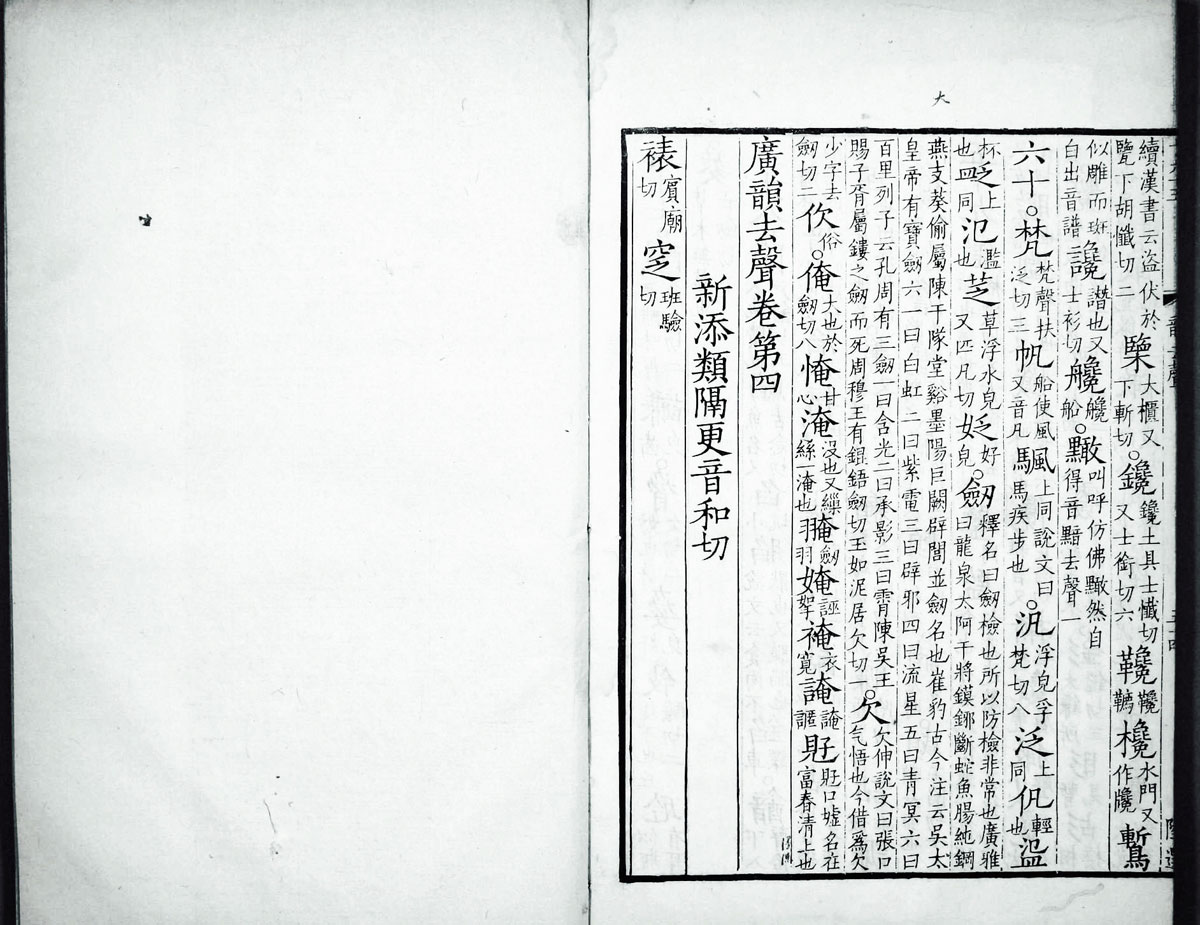 續漢書云盜伏於㯺大櫃又鑱鑱土具士懺切韉欃水門又作㔆
覽下胡懺切二下斬切又士銜切六
似雕而斑白出音譜讒譖也又士衫切艬艬船㘕叫呼仿佛㘕然自得音黯去聲一
六十梵梵聲扶泛切三帆船使風又音凡䫶上同說文曰馬疾步也汎浮皃孚梵切八泛上同㐲輕也㴀
杯也䀀上同氾濫也芝草浮水皃又匹凡切㚫好皃劒釋名曰劒檢也所以防檢非常也廣雅曰龍泉太阿干將鏌鋣斷蛇魚腸純鉤
燕支葵倫屬陳干隊堂谿墨陽巨闕辟閭並劒名也崔豹古今注云吳太
皇帝有寶劒六一曰白虹二曰紫電三曰辟邪四曰流星五曰青冥六曰
百里列子云孔周有三劒一曰含光二曰承影三曰霄陳吳王
賜子胥屬鏤之劒而死周穆王有錕鋙劒切玉如泥居欠切一欠欠伸說文曰張口气悟也今借爲欠
少字去劒切二㐸俗俺大也於劒切八㤿甘心淹沒也又繅絲一淹也𦑎劒羽㛪誣挐裺衣寬䛳䛳誑𧵊𧵊口墟名在富春清上也
廣韻去聲卷第四
新添類隔更音和切
裱賓廟切窆班驗切
大